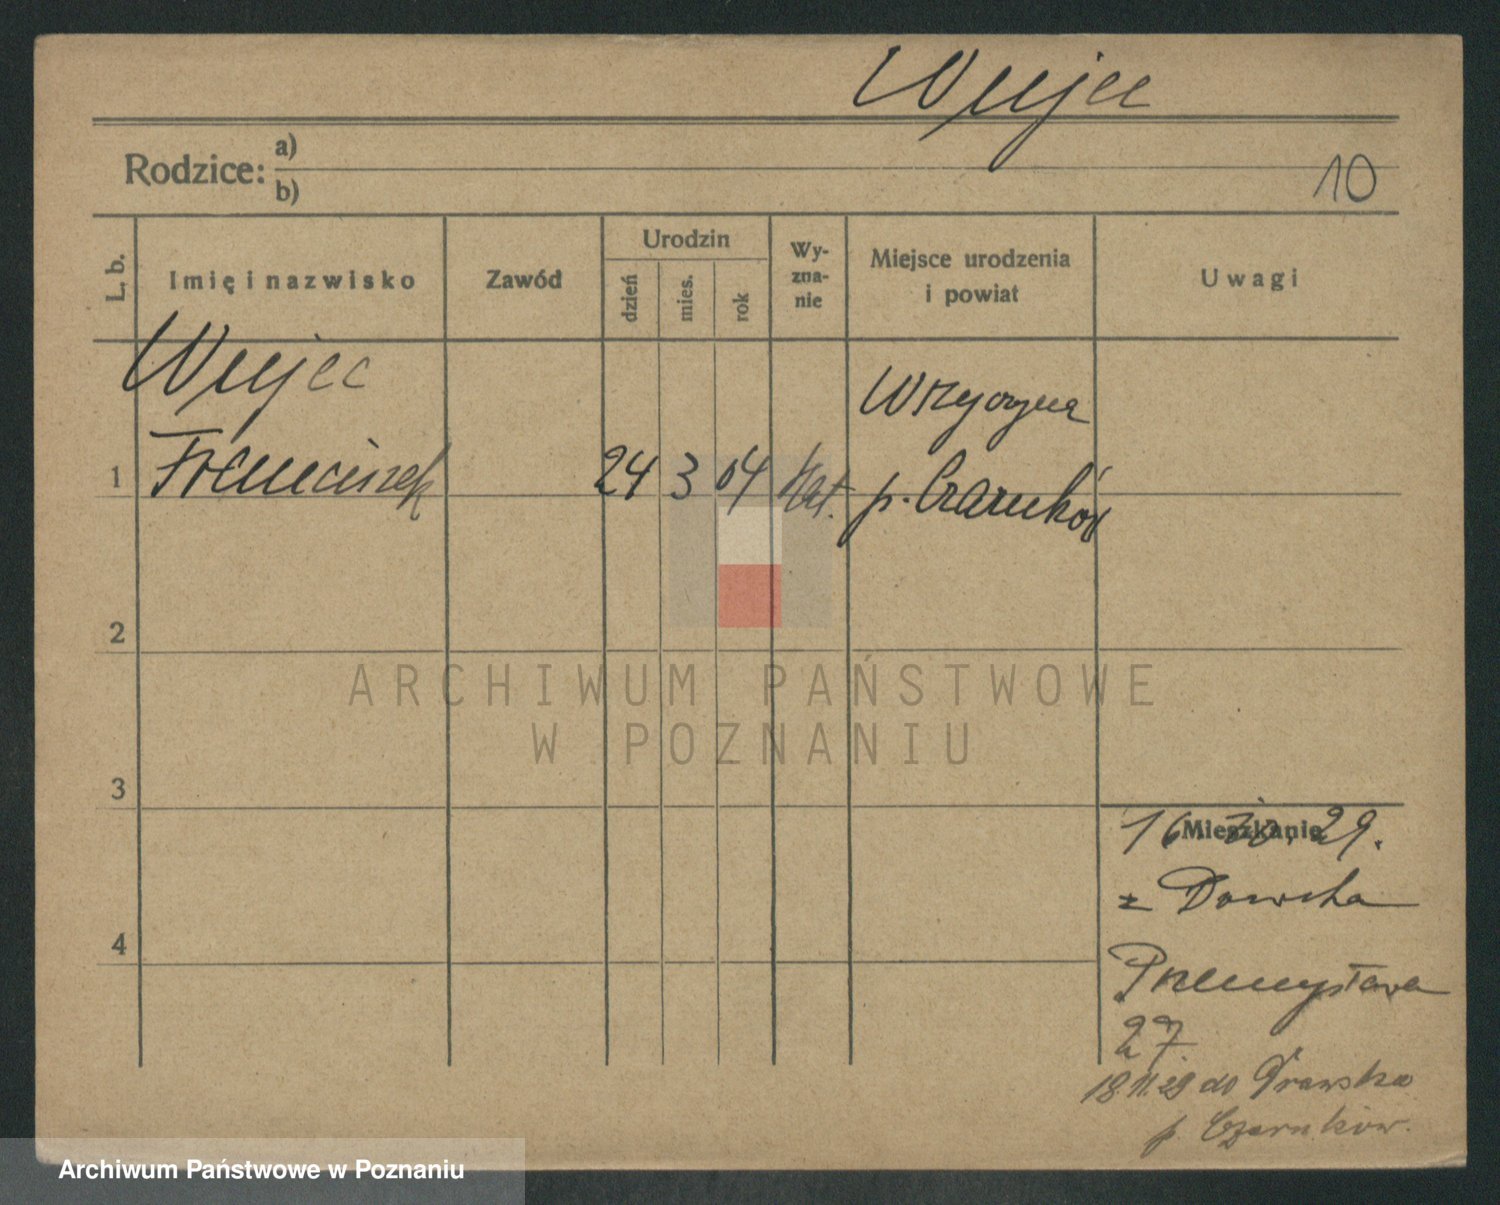 Wujec
Rodzice: a)
b)
10
L. b.
Imię i nazwisko
Zawód
Urodzin
dzień
mies.
rok
Wy-
zna-
nie
Miejsce urodzenia
i powiat
Uwagi
Wujec
1 Franciszek 24 3 04 kat. p. Czarnków
2
3
4
Mieszkanie
16. 29.
z
Przemysława
27.
18.11.29 do Drawska
p. Czarnków.
ARCHIWUM PAŃSTWOWE
W POZNANIU
Archiwum Państwowe w Poznaniu